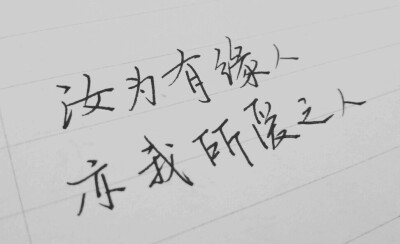 汝为有缘人
亦我所爱之人